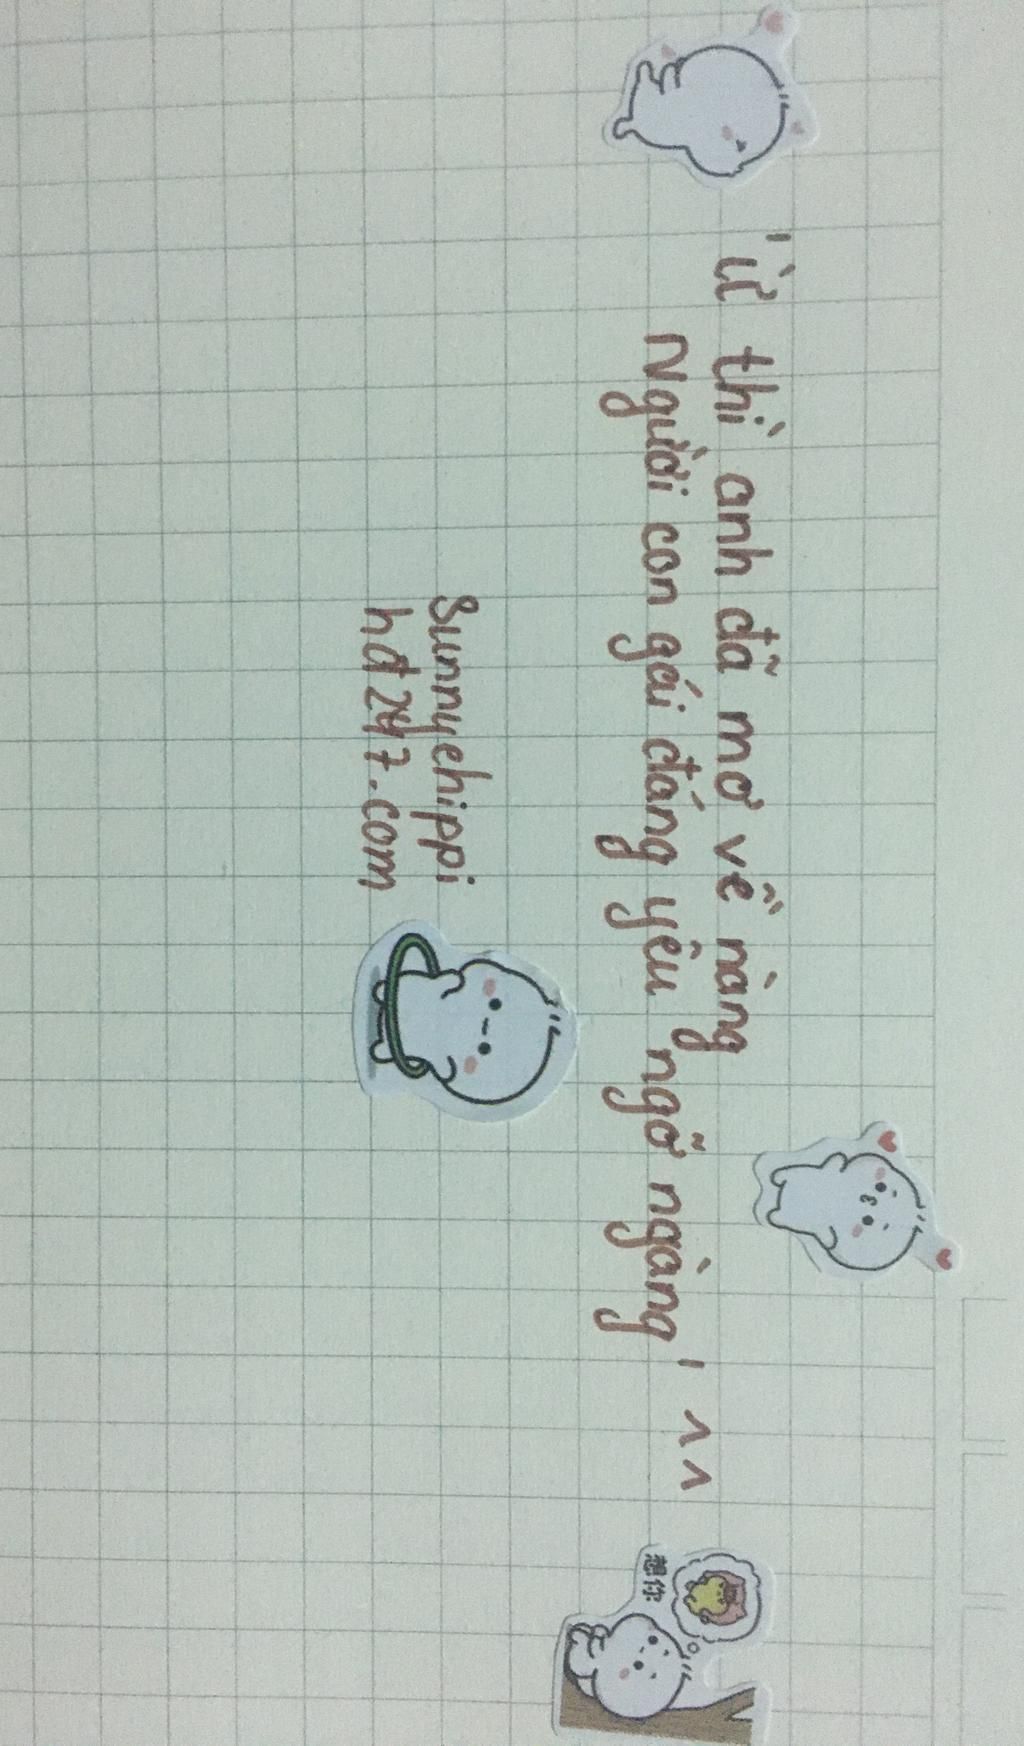 'Ừ thì anh đã mơ về nàng
Người con gái đáng yêu ngỡ ngàng' ^^
Sunnychippi
hđ247.com
想你